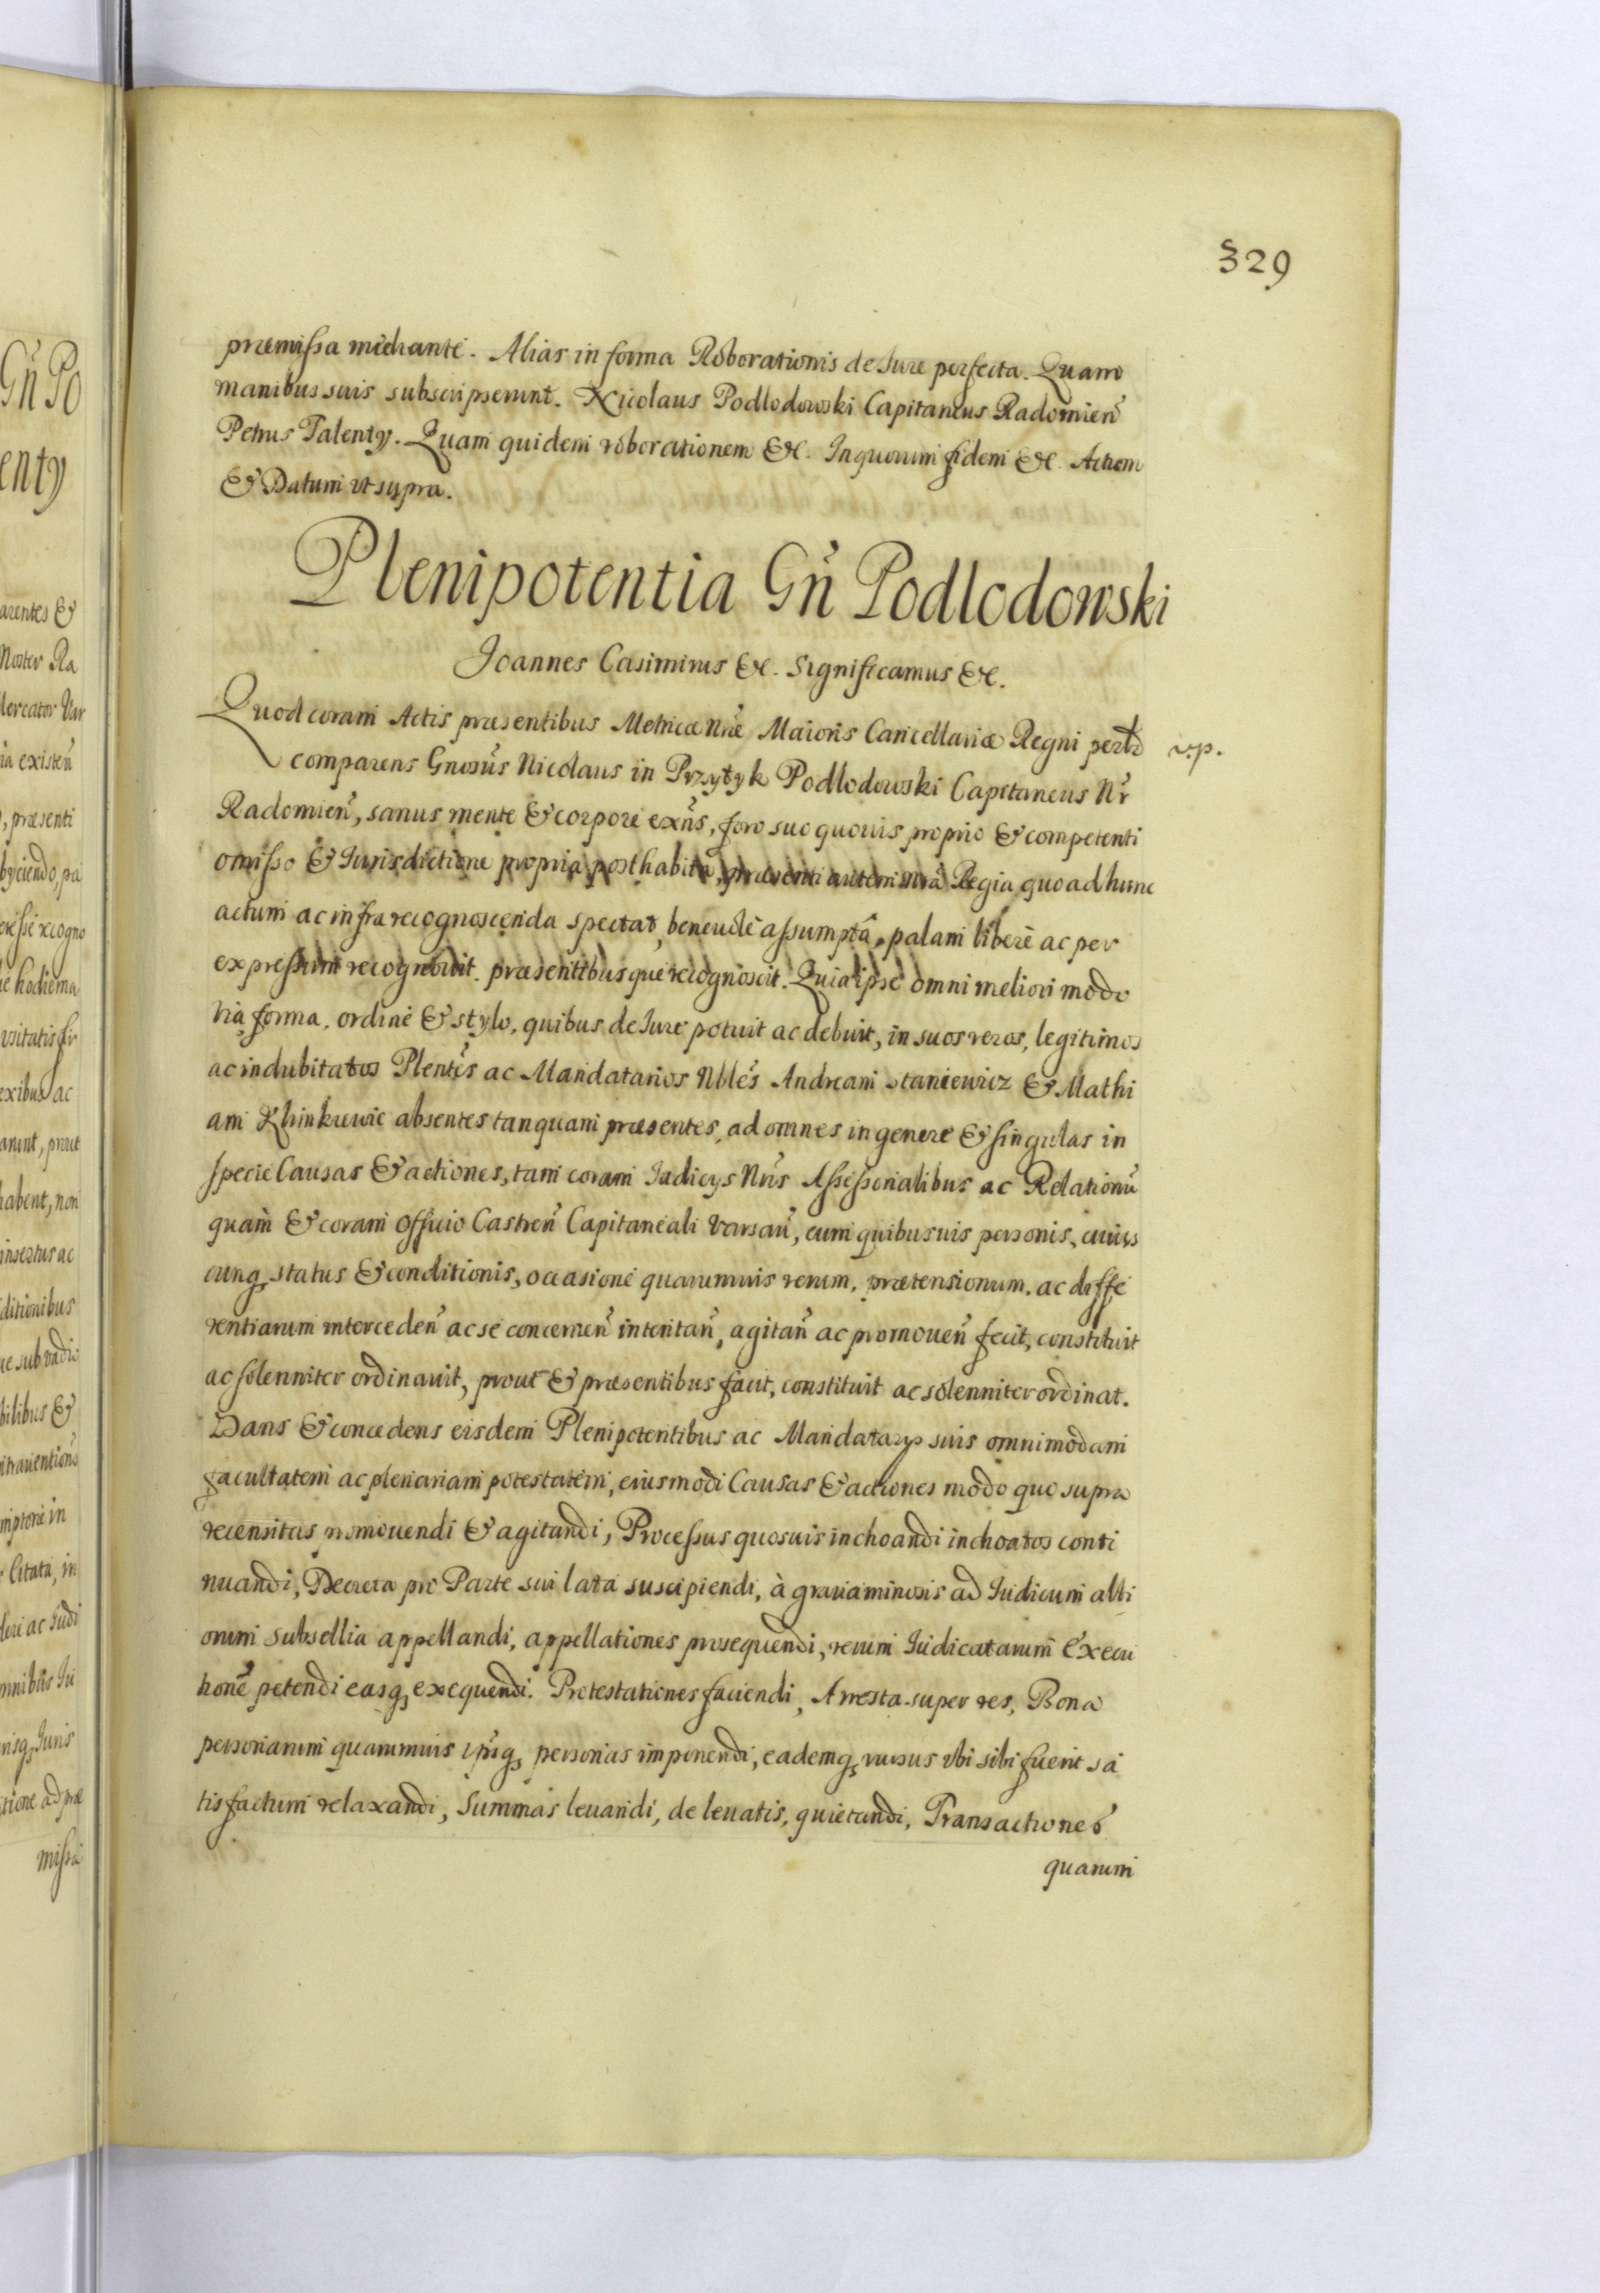 329
præmissa mediante. Alias in forma Roborationis de Iure perfecta. Quam
manibus suis subscripserunt. Nicolaus Podlodowski Capitaneus Radomien̄
Petrus Talenty. Quam quidem roborationem &c. In quorum fidem &c. Actum
& Datum ut supra.
Plenipotentia Gn̄ Podlodowski
Joannes Casimirus &c. Significamus &c.
Quod coram Actis præsentibus Metricæ Nr̄æ Maioris Cancellariæ Regni perlr̄
v.p.
comparens Gnosūs Nicolaus in Przytyk Podlodowski Capitaneus Nr̄
Radomien̄, sanus mente & corpore exn̄s, foro suo quovis proprio & competenti
omisso & Iurisdictione propria posthabita, præsenti autem nr̄â Regia quo ad hunc
actum ac infra recognoscenda spectat, benevolè assumptâ, palam liberè ac per
expressum recognovit. præsentibusque recognoscit. Quia ipse omni meliori modo
via forma, ordine & stylo, quibus de Iure potuit ac debuit, in suos veros, legitimos
ac indubitatos Plentēs ac Mandatarios Nblēs Andream Staniewicz & Mathi
am absentes tanquam præsentes, ad omnes in genere & singulas in
specie Causas & actiones, tam coram Iudicys Nr̄is Assessorialibus ac Relationū
quàm & coram Officio Castren̄ Capitaneali Varsav̄, cum quibusuis personis, cuius
cunq status & conditionis, occasione quarumuis rerum, prætensionum, ac diffe
rentiarum interceden̄ ac se concernen̄ intentan̄, agitan̄ ac promouen̄ fecit, constituit
ac solenniter ordinauit, prout & præsentibus facit, constituit ac solenniter ordinat.
Dans & concedens eisdem Plenipotentibus ac Mandatarys suis omnimodam
facultatem ac plenariam potestatem, eiusmodi Causas & actiones modo quo supra
recensitas promouendi & agitandi, Processus quosuis inchoandi inchoatos conti
nuandi, Decreta pro Parte sui lata suscipiendi, à grauaminosis ad Iudicum alti
orum subsellia appellandi, appellationes prosequendi, rerum Iudicatarum Execu
tionē petendi easq exequendi. Protestationes faciendi, Arresta super res, Bona
personarum quarumuis ip̄asq personas imponendi, eademq rursus ubi sibi fuerit sa
tisfactum relaxandi, Summas leuandi, de leuatis, quietandi, Transactiones
quarum